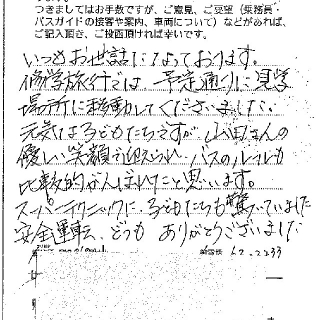 つきましてはお手数ですが、ご意見、ご要望（乗務員・
バスガイドの接客や案内、車両について）などがあれば、
ご記入頂き、ご投函頂ければ幸いです。
いつもお世話になっております。
修学旅行では、予定通りに見学
場所に移動してくださいました。
元気な子どもたちですが、山田さんの
優しい笑顔で迎えられ、バスのルールも
比較的がんばれたと思います。
スーパーテクニックに、子どもたちも驚いていました
安全運転、どうも ありがとうございました